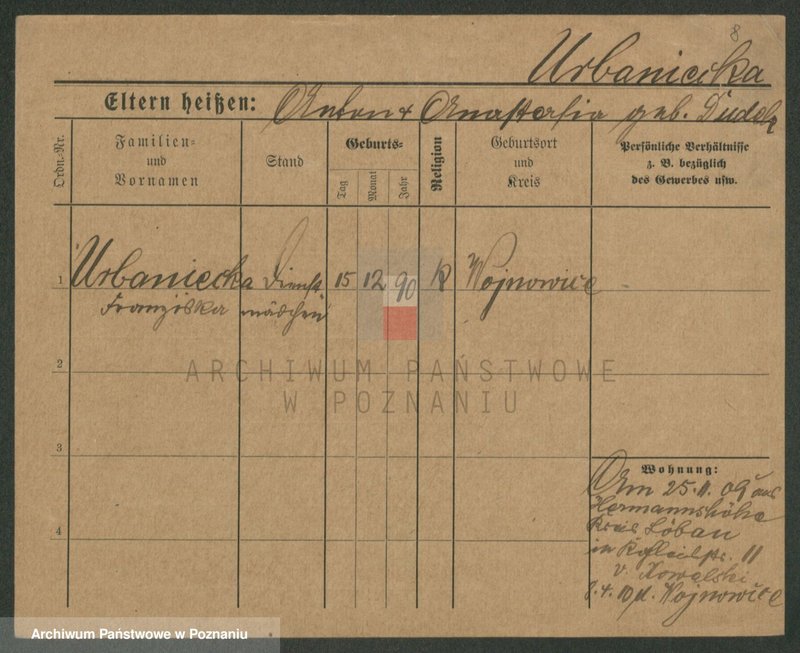 8
Urbaniecka
Eltern heißen: Anton & Anastasia geb. Dudek
Ordn.-Nr. Familien- und Vornamen Stand Geburts- Tag Monat Jahr Religion Geburtsort und Kreis Persönliche Verhältnisse z. B. bezüglich des Gewerbes usw.
1 Urbaniecka Dienst 15 12 90 K Wojnowice
Franziska mädchen
ARCHIWUM PAŃSTWOWE
W POZNANIU
2
3
4
Wohnung:
Am 25.11.09 aus
Hermannshöhe
Kreis Löbau
in 11
v. Kowalski
8.4.10 n. Wojnowice
Archiwum Państwowe w Poznaniu